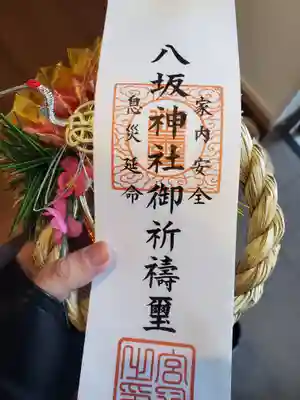 家内安全
八坂神社御祈禱璽
息災延命